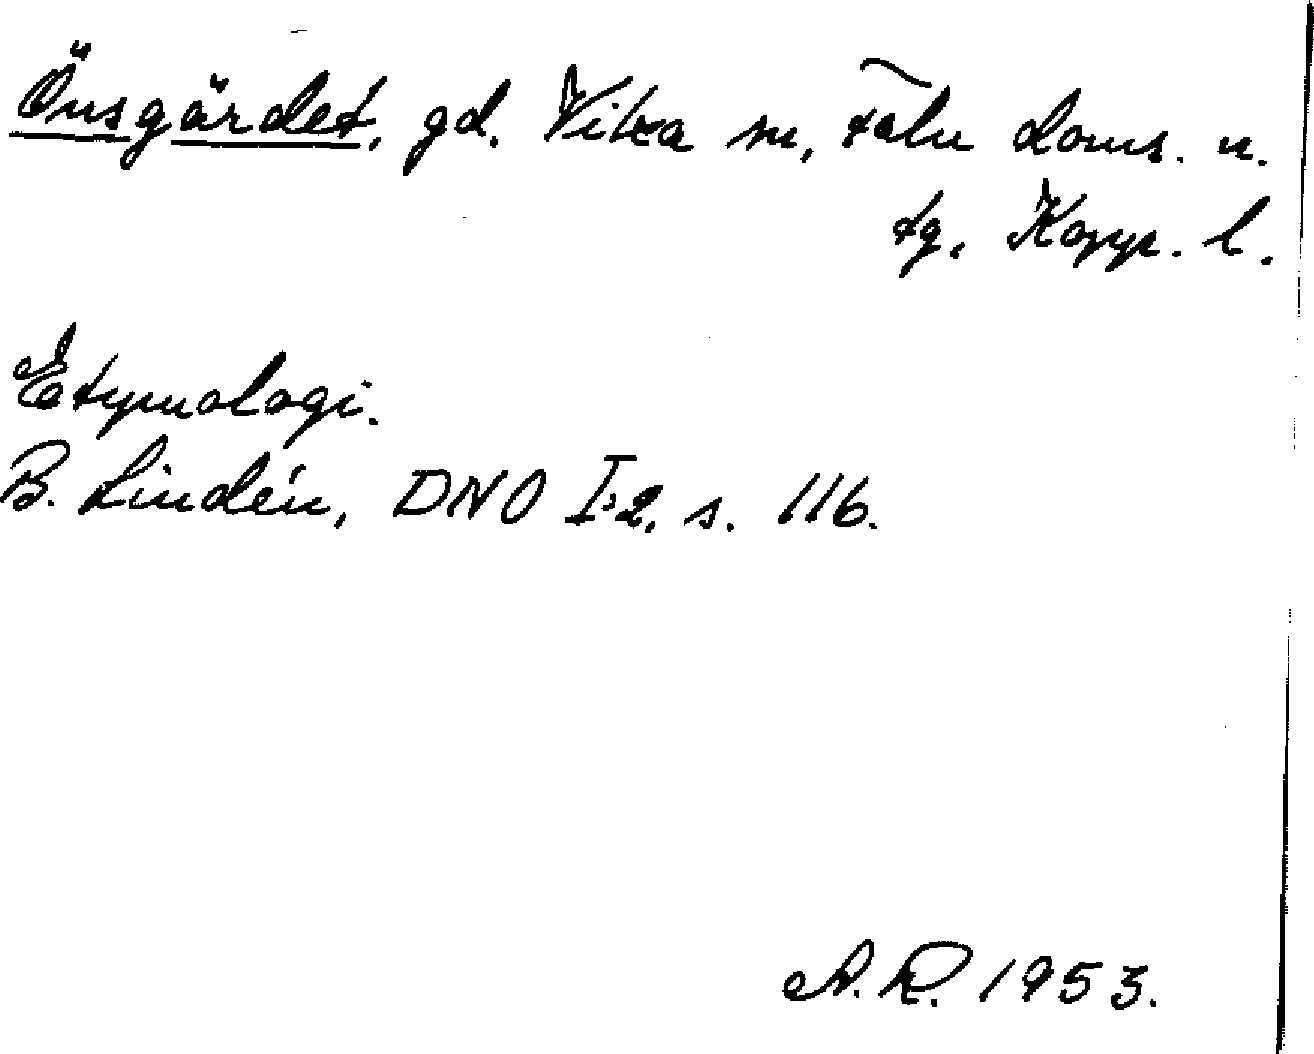 Önsgärdet, gd. Vika sn, Falu doms. o.
tg, Kopp. l.
Etymologi.
B. Lindén, DNO I:2, s. 116.
A.R. 1953.